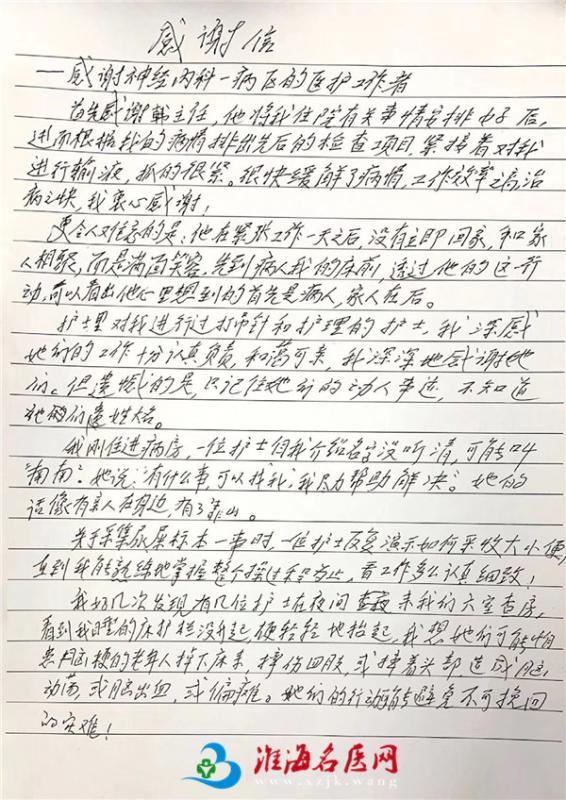 感谢信
—感谢神经内科一病区的医护工作者
首先感谢韩主任，他将我住院有关事情安排好后，
进而根据我的病情排出先后的检查项目，紧接着对我
进行输液，抓的很紧。很快缓解了病情，工作效率之高，治
病之快，我衷心感谢！
更令人难忘的是：他在紧张工作一天之后，没有立即回家，和家
人相聚，而是满面笑容，先到病人我的床前，透过他的这一行
动，可以看出他心里想到的首先是病人，家人在后。
护士里对我进行过打吊针和护理的护士，我深感
她们的工作十分认真负责，和蔼可亲，我深深地感谢她
们。但遗憾的是，只记住她们的动人事迹，不知道
她们的贵姓大名。
我刚住进病房，一位护士自我介绍名字没听清，可能叫
“南南”。她说：“有什么事，可以找我，我尽力帮助解决”。她的
话像有亲人在身边，有了靠山。
关于采集尿屎标本一事时，一位护士反复演示如何采收大小便，
直到我能熟练地掌握整个操过程为止，看工作多么认真细致！
我好几次发现有几位护士在夜间来我们六室查房，
看到我睡的床护栏没升起，便轻轻地抬起，我想她们可能怕
患脑梗的老年人掉下床来，摔伤四肢，或摔着头部，造成脑
动荡或脑出血，或偏瘫。她们的行动能避免不可挽回
的灾难！
淮海名医网
www.xzjk.wang